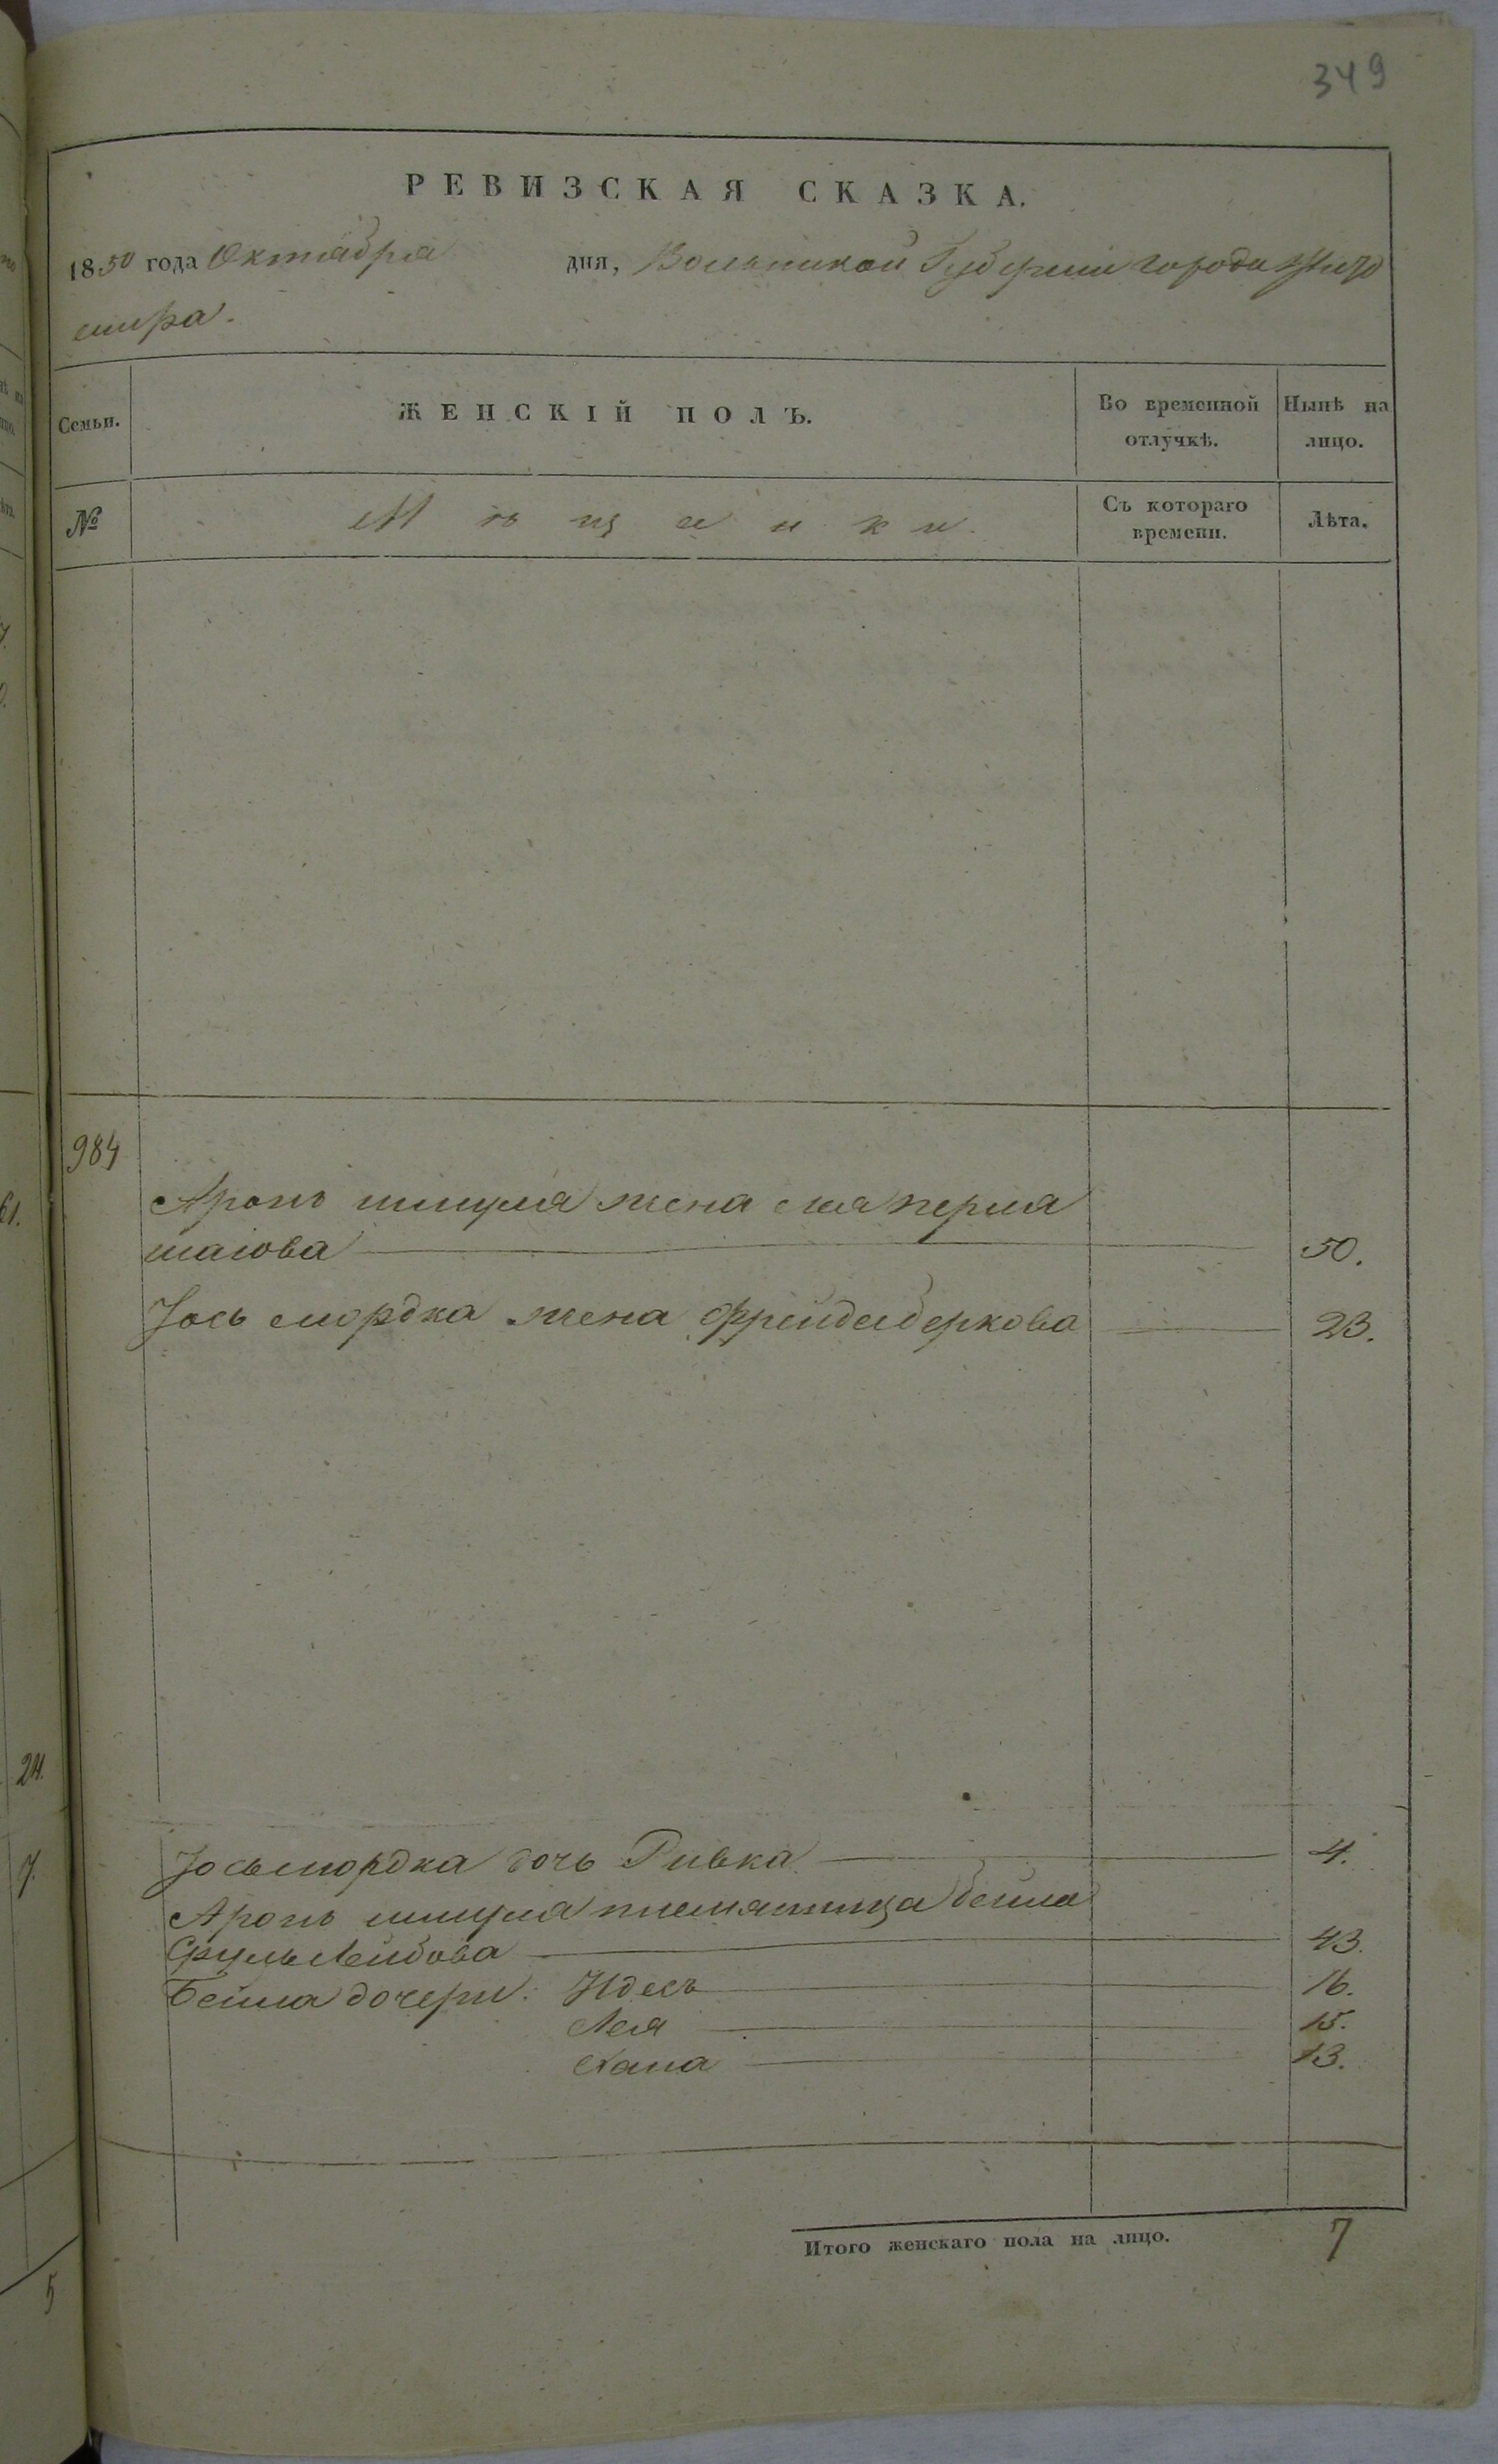 349
РЕВИЗСКАЯ СКАЗКА.
1850 года Октября дня, Волынской Губернии города Жито
мира.
Семьи. ЖЕНСКІЙ ПОЛЪ. Во временной отлучкѣ. Нынѣ на лицо.
№ Мѣщанки. Съ котораго времени. Лѣта.
984
Аронъ шмуля жена
шаиова 50.
Іось мордка жена Фрейда беркова 23.
Іосьмордка дочь Ривка 4.
Аронъ шмуля племянница бейла
Лейбова 43.
Бейла дочери: Идесъ 16.
Лея 15.
Хана 13.
Итого женскаго пола на лицо. 7
61.
24.
7.
5